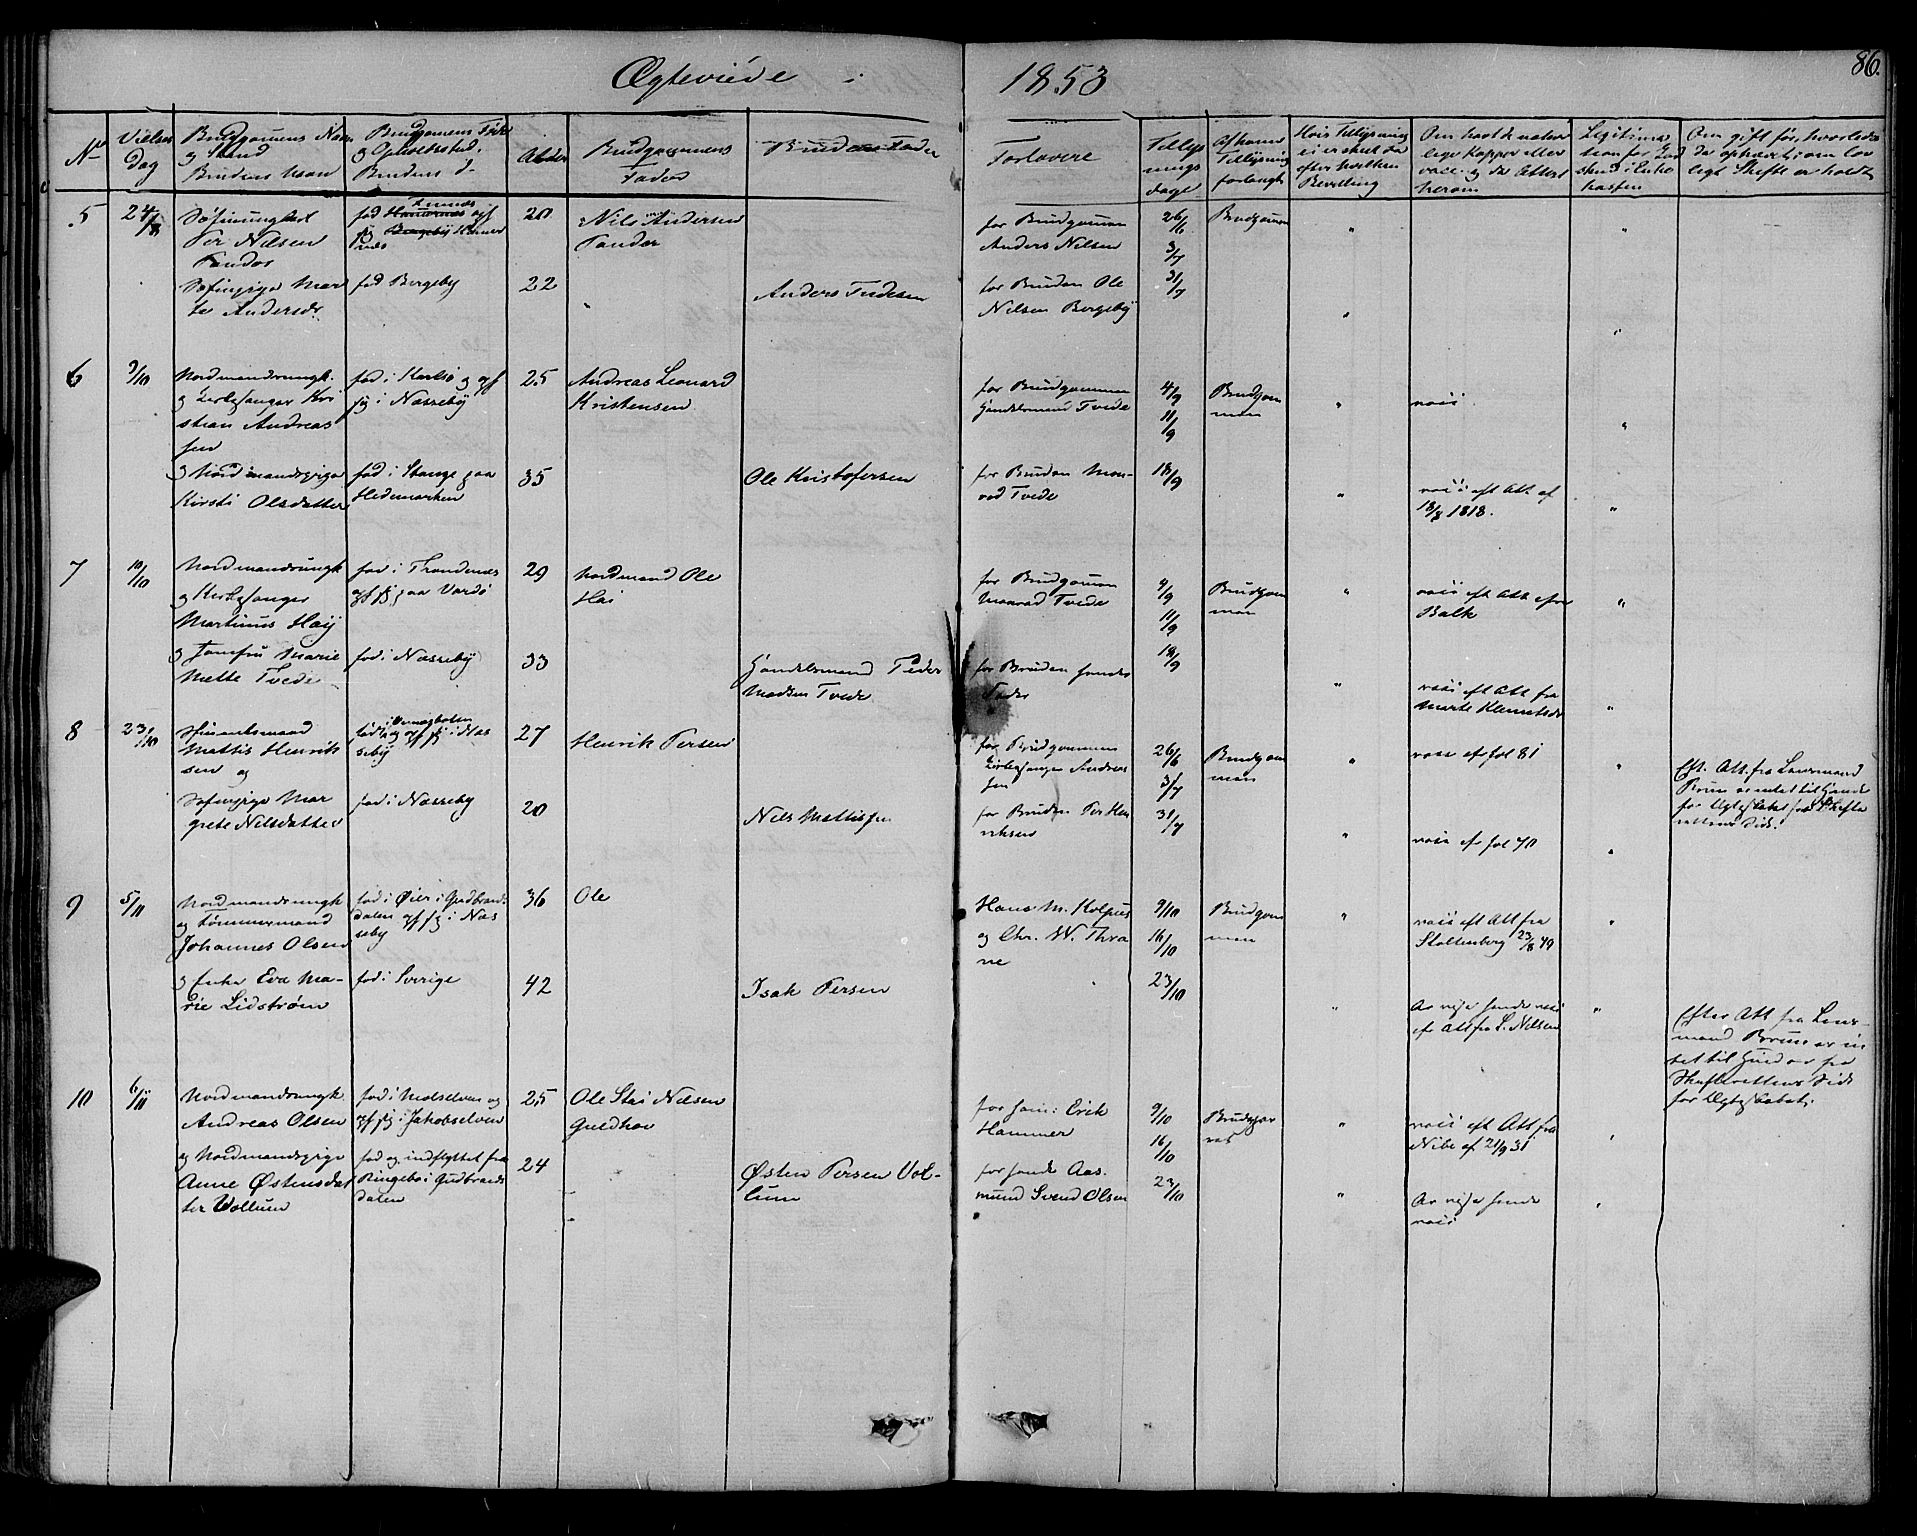 Ægteviede i 1853
86.
No
Vielses
Dag
Brudgomens Navn
og Stand
Brudens Navn
Brudgomens Føde
og Opholdssted.
Brudens d-
Alder
Brudgomens
Fader
Brudens Fader
Forlovere
Tillys
nings
dage
Af hvem
Tillysning
forlangt
Hvis Tillysning
ei er skeet da
efter hvilken
Bevilling
Om havt de natur
lige Kopper eller
vacc. og da Attest
herom
Legitima
tion for
Om gift før, hvorledes
da ophævt; om lov
ligt Skifte er holdt
5
24/8
Søfinungkarl
Per Nilsen
Tander
fød
og
20
Nils Andersen
Tander
for Brudgomen
Anders Nilsen
26/6
3/7
Brudgomen
"
"
Søfinpige Mar
te Andersdr
fød Bergeby
22
"
Anders Tudesen
for Bruden Ole
Nilsen Bergeby
31/7
"
"
6
9/10
Nordmandsungk.
og Kirkesanger Kri
stian Andreas
sen
fød i Karlsø og opf
sig i Næsseby
25
Andreas Leonard
Kristensen
for Brudgommen
Handelsmand Tvede
4/9
11/9
Brudgom
men
"
vacc.
"
og Nordmandspige
Kirsti Olsdatter
fød i Stange paa
Hedemarken
35
Ole Kristofersen
for Bruden Mon-
rad Tvede
18/9
"
vacc. eft Att af
18/8 1818.
"
7
10/10
Nordmandsungk
og Kirkesanger
Martinus Høij
fød i Trondenæs
opf sig paa Vardø
29
Nordmand Ole
Høi
for Brudgomen
Monrad Tvede
4/9
11/9
Brudgom
men
"
vacc eft Att fra
Balk
"
og Jomfru Marie
Mette Tvede
fød i Næsseby
33
Handelsmand Peder
Madsen Tvede
for Bruden hendes
Fader
18/9
"
vacc eft Att fra
Marte Klemetsdr
"
8
23/10
Mattis Henrik
sen og
27
Henrik Persen
for Brudgommen
Kirkesanger Andreas
sen
26/6
3/7
Brudgom
men
"
vacc efr fol 81
"
Eft. Att. fra Lensmand
Brun er intet til Hinder
for Ægteskabet fra Skifte
rettens Side.
Søfinpige Mar
grete Nilsdatter
fød i Næsseby
20
Nils Mattissen
for Bruden Per Hen
riksen
31/7
"
vacc efr fol 70
"
9
5/11
Nordmandsungk
og Tømmermand
Johannes Olsen
fød i Øier i Gudbrands
dalen opf sig i Næs
seby
36
Ole
Hans M. Kolpus
og Chr. W. Thra
ne
9/10
16/10
Brudgom
men
"
vacc eft Att fra
Stoltenberg 23/8 49
"
og Enke Eva Ma-
rie Lidstrøm
fød i Sverige
42
Isak Persen
23/10
"
Ar vise hende vacc
ef Att fra L. Nilsen
"
Efter Att fra Lens-
mand Brun er in
tet til Hinder fra
Skifterettens Side
for Ægteskabet.
10
6/11
Nordmandsungk
Andreas Olsen
fød i Maalselven og
opf sig i Jakobselven
25
Ole Stai Nilsen
Guldhav
for ham: Erik
Hammer
9/10
16/10
"
vacc eft Att fra
Nibe af 21/9 31
"
og Nordmandspige
Anne Østensdat
ter Vollum
fød og indflyttet fra
Ringebo i Gudbrands
dalen
24
Østen Persen Vol-
lum
for hende Aas.
mund Svend Olsen
23/10
"
Ar vise hende
vacc
"